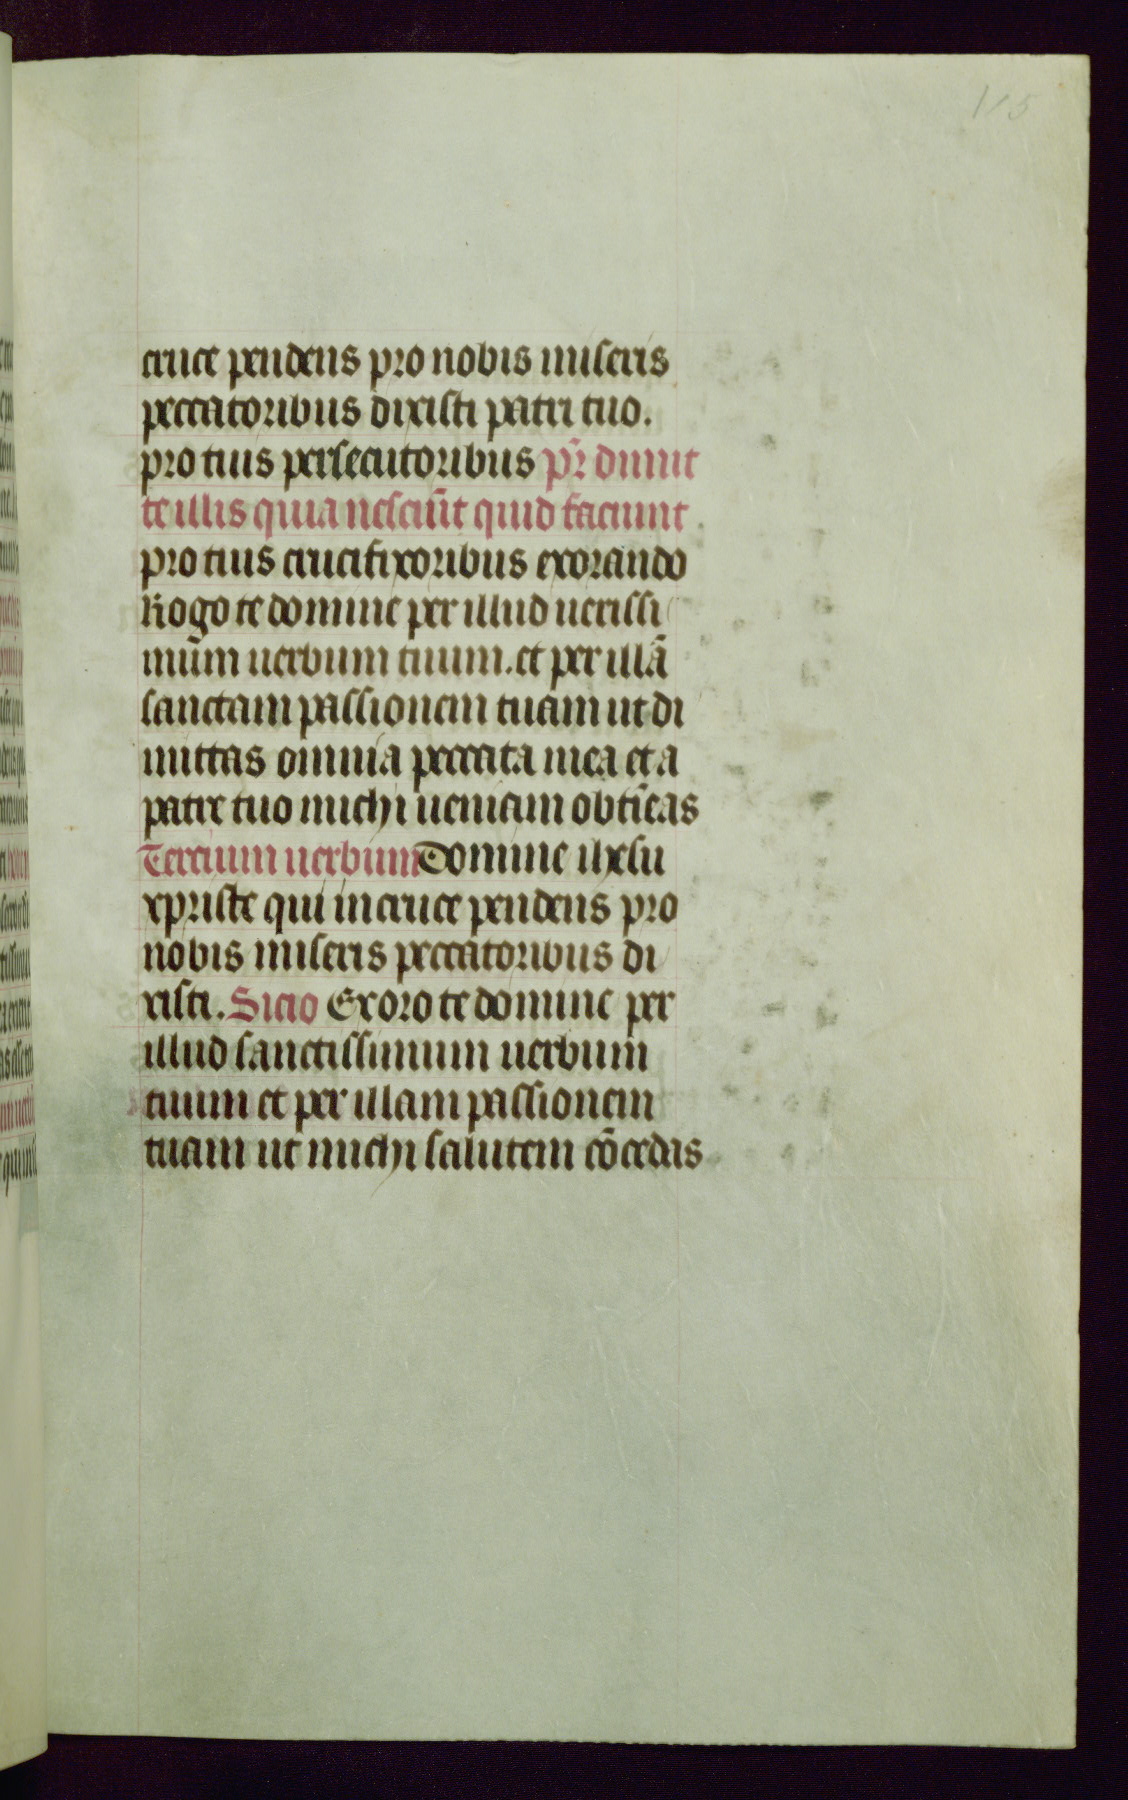 115
cruce pendens pro nobis miseris
peccatoribus dixisti patri tuo.
pro tuis persecutoribus pr̄ dimit
te illis quia nesciūt quid faciunt
pro tuis crucifixoribus exorando
Rogo te domine per illud uerissi
mūm uerbum tuum. et per illā
sanctam passionem tuam ut di
mittas omnia peccata mea et a
patre tuo michi ueniam obtīeas
Tercium uerbum Domine ihesu
xpriste qui in cruce pendens pro
nobis miseris peccatoribus di
xisti. Sicio Exoro te domine per
illud sanctissimum uerbum
tuum et per illam passionem
tuam ut michi salutem cōcedas